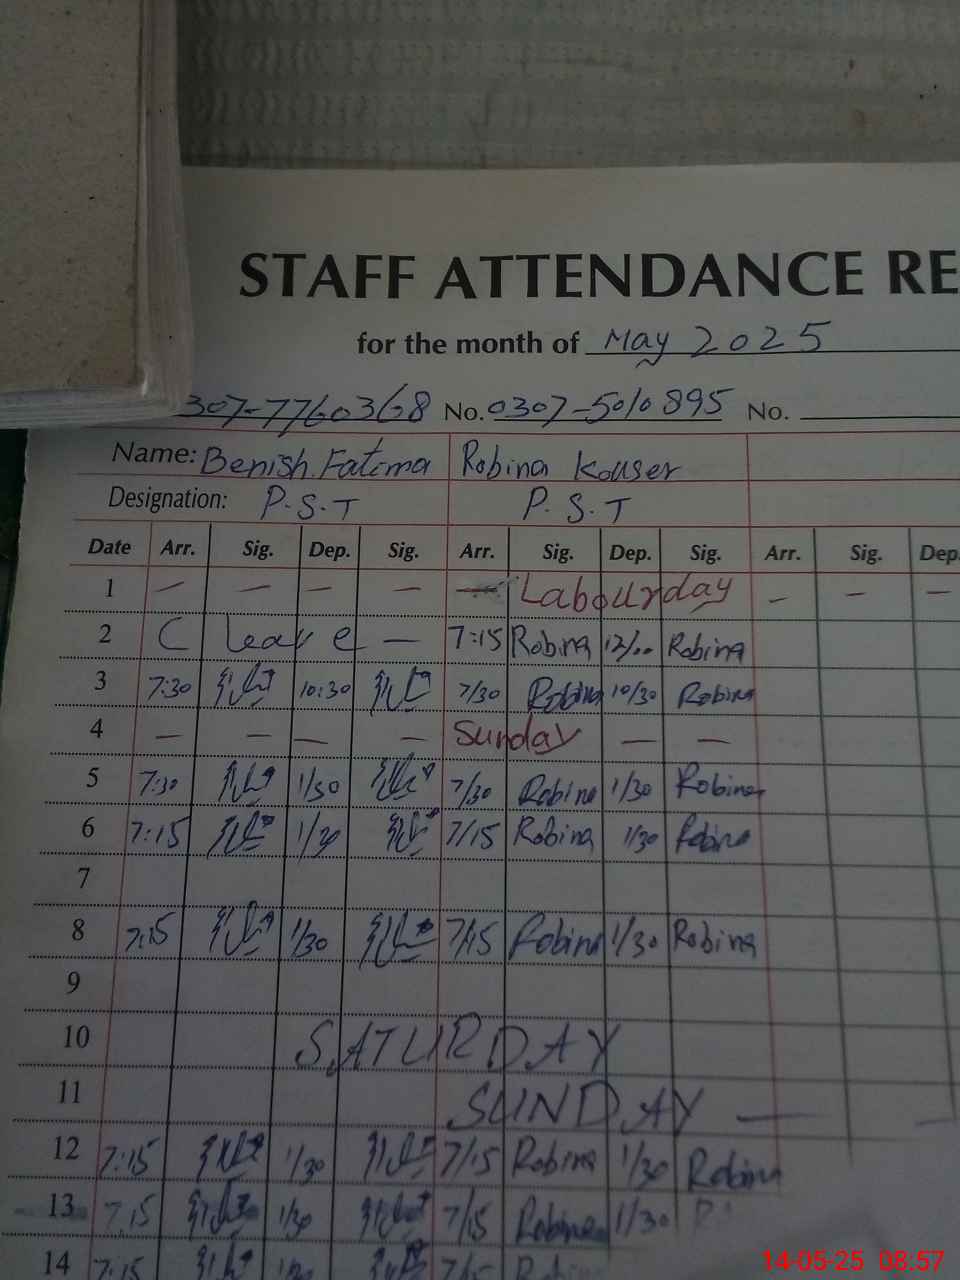 STAFF ATTENDANCE RE
for the month of May 2025
307-7760368 No. 0307-5010895 No.
Name: Benish Fatima Robina Kouser
Designation: P.S.T P.S.T
Date Arr. Sig. Dep. Sig. Arr. Sig. Dep. Sig. Arr. Sig. Dep.
1 — — — — — Labourday — — —
2 C leave — 7:15 Robina 12/00 Robina
3 7:30 10:30 7/30 Robina 10/30 Robina
4 — — — — Sunday — —
5 7:30 1/30 7/30 Robina 1/30 Robina
6 7:15 1/30 7/15 Robina 1/30 Robina
7
8 7:15 1/30 7/15 Robina 1/30 Robina
9
10 SATURDAY
11 SUNDAY — —
12 7:15 1/30 7/15 Robina 1/30 Robina
13 7:15 1/30 7/15 Robina 1/30
14 7:15 1/30
14-05-25 08:57